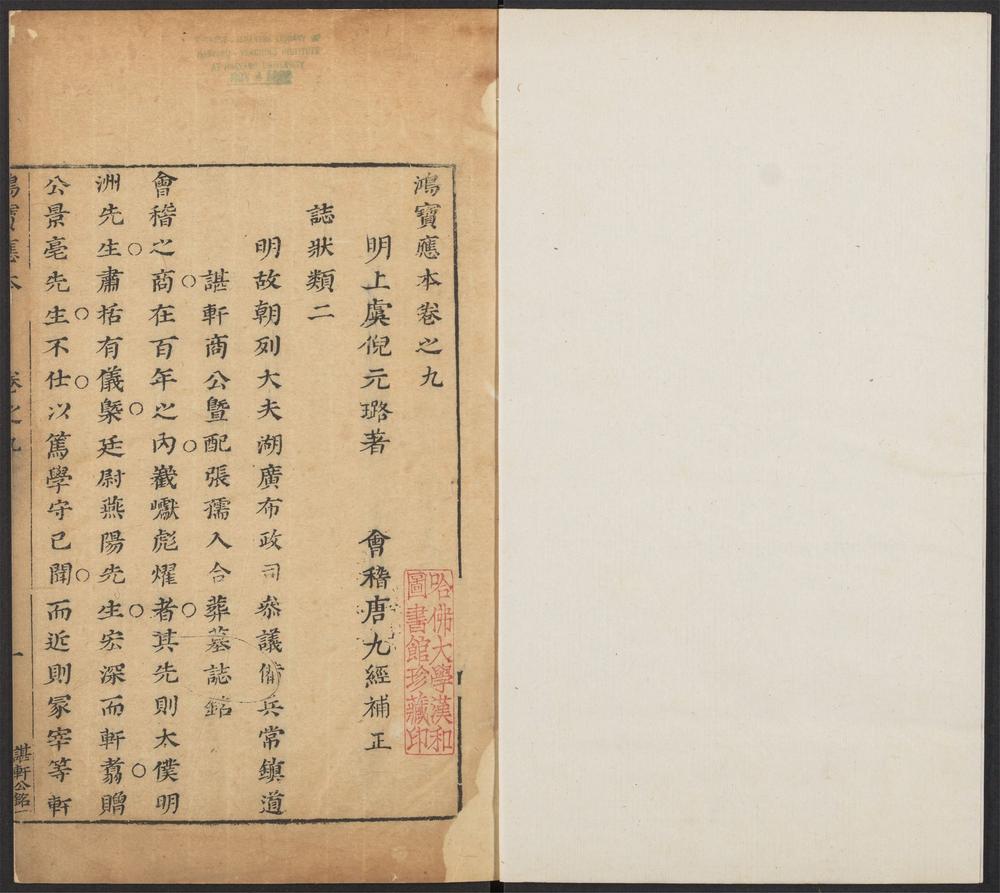 鴻寶應本卷之九
明上虞倪元璐著 會稽唐九經補正
誌狀類二
明故朝列大夫湖廣布政司叅議備兵常鎮道
諶軒商公暨配張孺人合葬墓誌銘
會稽之商在百年之内巀㠥彪燿者其先則太僕明
洲先生肅括有儀槩廷尉燕陽先生宏深而軒翥贈
公景亳先生不仕以篤學守己聞而近則冡宰等軒
鴻寶應本 卷之九 一 諶軒公銘一
哈佛大學漢和
圖書館珍藏印
HARVARD-YENCHING INSTITUTE
AT HARVARD UNIVERSITY